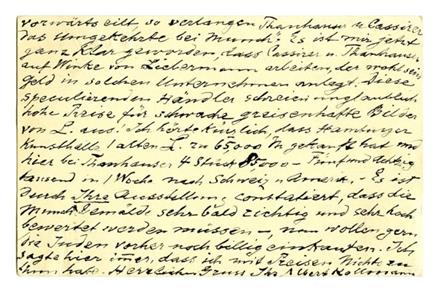 vorwärts eilt, so verlangen Thanhauser u Cassirer
das Umgekehrte bei Munch. Es ist mir jetzt
ganz klar geworden, dass Cassirer u Thanhauser
auf Winke von Liebermann arbeiten, der wohl sein
geld in solchen Unternehmen anlegt. Diese
speculierenden Händler schreien unglaublich
hohe Preise für schwache, greisenhafte Bilder
von L. aus! Ich hörte kürzlich, dass Hamburger
Kunsthalle 1 alten L. zu 65000 M gekauft hat und
hier bei Thanhauser 4 Stück 85000 - Fünf und achtzig
tausend in 1 Woche nach Schweiz u Amerik. - Es ist
durch Ihre Ausstellung constatiert, dass die
Munch Gemälde sehr bald zichtig und sehr hoch
bewertet werden müssen -, nun wollen gern
die Juden vorher noch billig einkaufen. Ich
sagte hier immer, dass ich mit Preisen Nichts zu
thun habe. Herzlichen Gruss Ihr Albert Kollmann